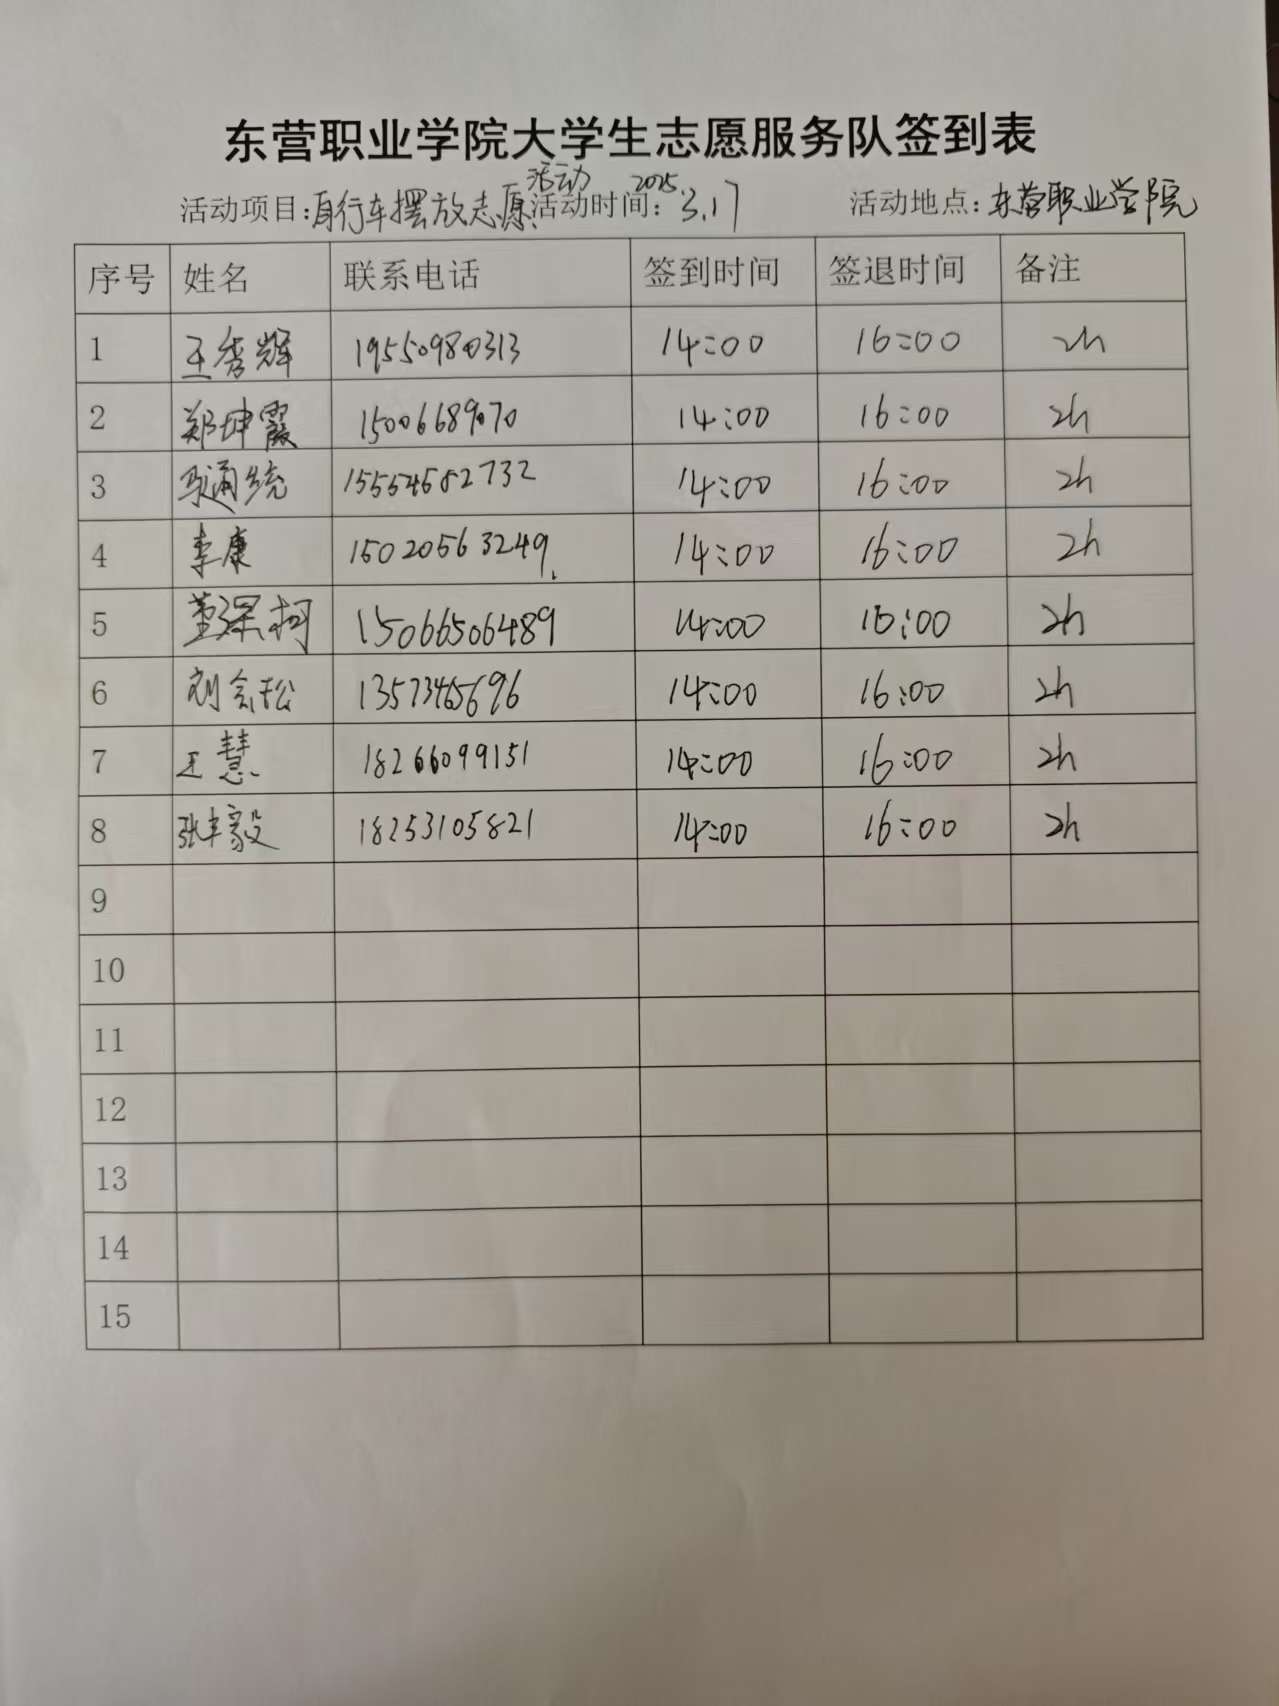 东营职业学院大学生志愿服务队签到表
活动项目:自行车摆放志愿活动 活动时间:2025.3.17 活动地点:东营职业学院
序号 姓名 联系电话 签到时间 签退时间 备注
1 王秀辉 19550980313 14:00 16:00 2h
2 郑坤霞 15006689070 14:00 16:00 2h
3 15554682732 14:00 16:00 2h
4 李康 15020563249 14:00 16:00 2h
5 董深柯 15066506489 14:00 16:00 2h
6 刘会松 14:00 16:00 2h
7 王慧 18266099151 14:00 16:00 2h
8 张丰毅 18253105821 14:00 16:00 2h
9
10
11
12
13
14
15